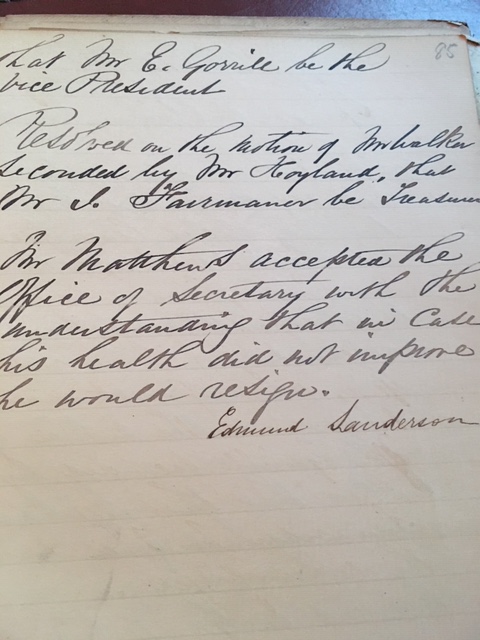 85
that Mr E. Gorrile be the
Vice President
Resolved on the motion of Mr Walker
seconded by Mr Hoyland, that
Mr J. Fairmaner be Treasurer
Mr Matthews accepted the
Office of Secretary with the
understanding that in Case
his health did not improve
he would resign.
Edmund Sanderson